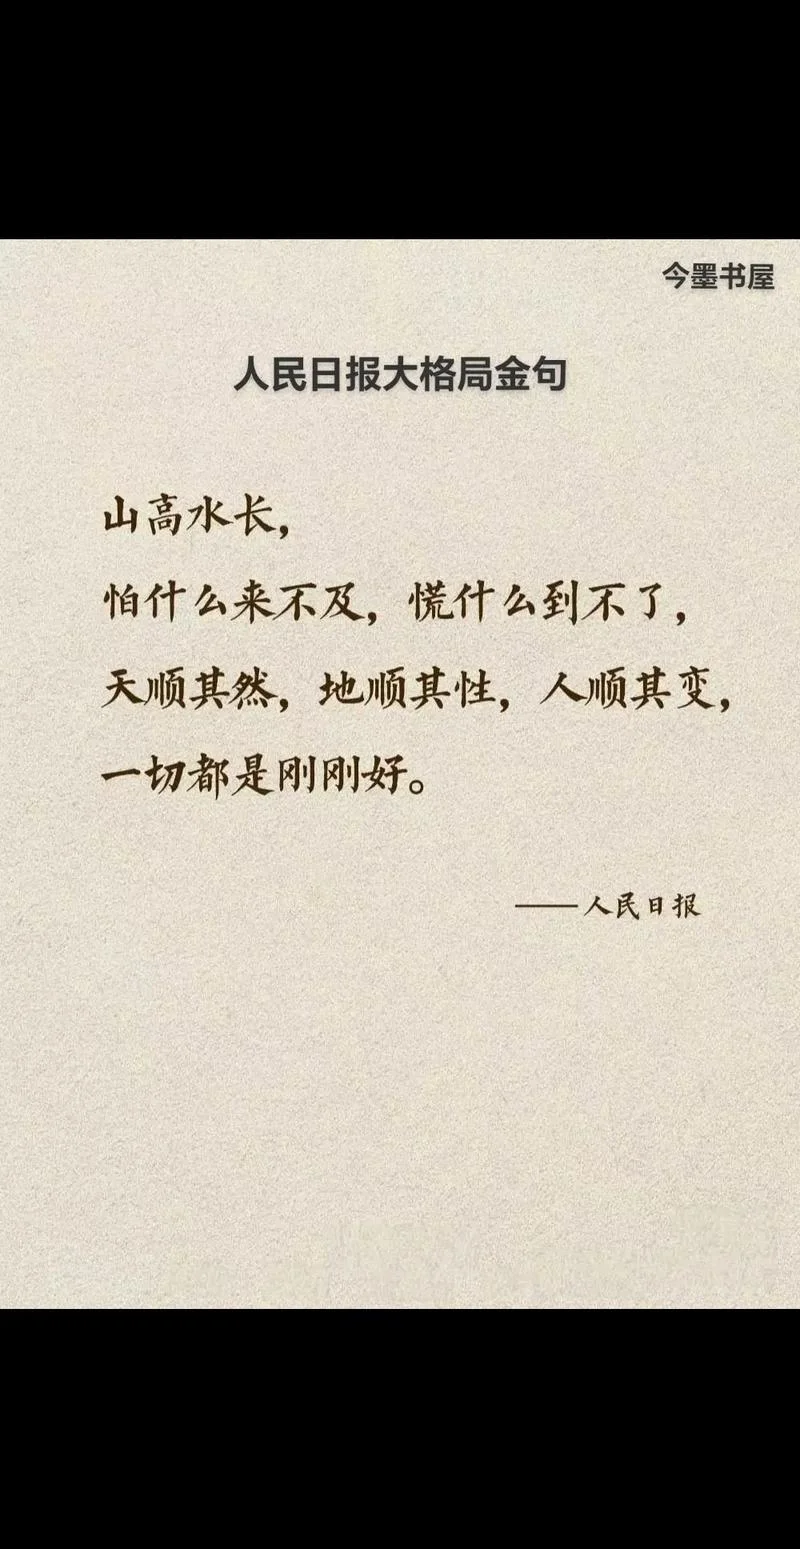 今墨书屋
人民日报大格局金句
山高水长，
怕什么来不及，慌什么到不了，
天顺其然，地顺其性，人顺其变，
一切都是刚刚好。
——人民日报